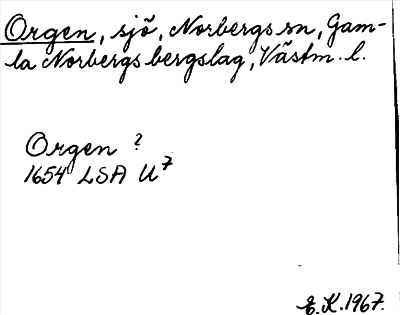 Orgen, sjö, Norbergs sn, Gam-
la Norbergs bergslag, Västm. l.
Orgen ?
1654 LSA U7
E.K.1967.